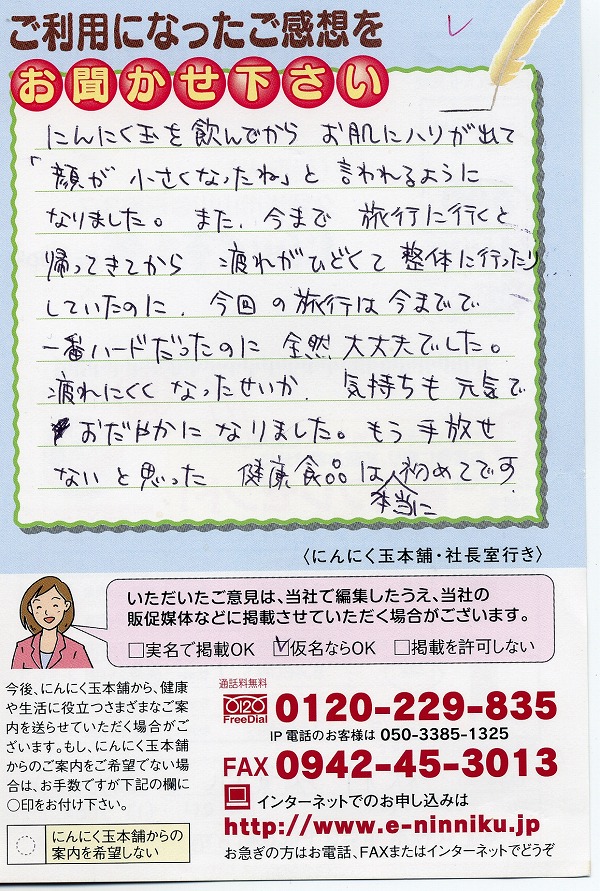 ご利用になったご感想を
お聞かせ下さい
にんにく玉を飲んでから お肌にハリが出て
「顔が 小さくなったね」と 言われるように
なりました。 また、今まで 旅行に行くと
帰ってきてから 疲れがひどくて 整体に行ったり
していたのに、今回の旅行は今までで
一番ハードだったのに 全然大丈夫でした。
疲れにくく なったせいか、 気持ちも 元気で
おだやかに なりました。 もう 手放せ
ないと思った 健康食品は 初めてです
本当に
〈にんにく玉本舗・社長室行き〉
いただいたご意見は、当社で編集したうえ、当社の
販促媒体などに掲載させていただく場合がございます。
□実名で掲載OK ☑仮名ならOK □掲載を許可しない
今後、にんにく玉本舗から、健康
や生活に役立つさまざまなご案
内を送らせていただく場合がご
ざいます。もし、にんにく玉本舗
からのご案内をご希望でない場
合は、お手数ですが下記の欄に
〇印をお付け下さい。
にんにく玉本舗からの
案内を希望しない
通話料無料
0120
FreeDial
0120-229-835
IP電話のお客様は 050-3385-1325
FAX 0942-45-3013
インターネットでのお申し込みは
http://www.e-ninniku.jp
お急ぎの方はお電話、FAXまたはインターネットでどうぞ